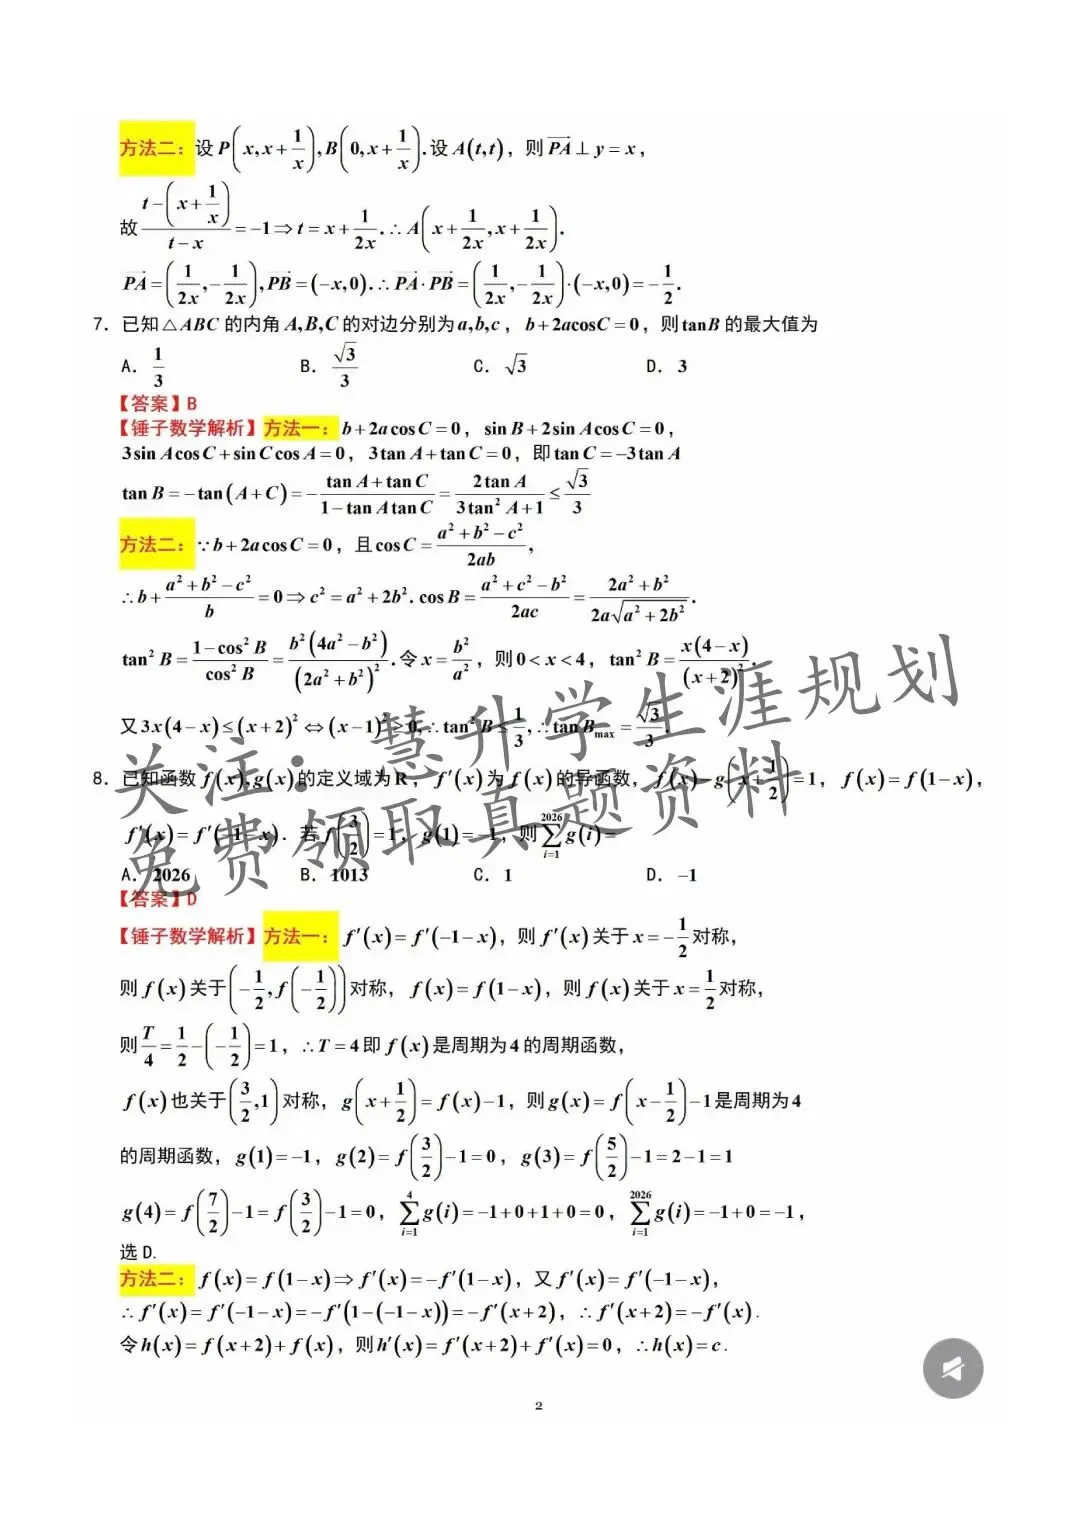 方法二：设P(x,x+1/x),B(0,x+1/x).设A(t,t)，则PA⊥y=x，
故 (t-(x+1/x))/(t-x)=-1⇒t=x+1/2x.∴A(x+1/2x,x+1/2x).
PA=(1/2x,-1/2x),PB=(-x,0).∴PA·PB=(1/2x,-1/2x)·(-x,0)=-1/2.
7. 已知△ABC 的内角A,B,C的对边分别为a,b,c，b+2acosC=0，则tanB的最大值为
A. 1/3 B. √3/3 C. √3 D. 3
【答案】B
【锤子数学解析】方法一：b+2acosC=0，sinB+2sinAcosC=0，
3sinAcosC+sinCcosA=0，3tanA+tanC=0，即tanC=-3tanA
tanB=-tan(A+C)=-(tanA+tanC)/(1-tanAtanC)=2tanA/(3tan²A+1)≤√3/3
方法二：∵b+2acosC=0，且cosC=(a²+b²-c²)/2ab，
∴b+(a²+b²-c²)/b=0⇒c²=a²+2b².cosB=(a²+c²-b²)/2ac=(2a²+b²)/(2a√(a²+2b²)).
tan²B=(1-cos²B)/cos²B=b²(4a²-b²)/(2a²+b²)².令x=b²/a²，则0<x<4，tan²B=x(4-x)/(x+2)².
又3x(4-x)≤(x+2)²⇔(x-1)²≥0,∴tan²B≤1/3,∴tanBmax=√3/3.
关注：慧升学生涯规划
免费领取真题资料
8. 已知函数f(x),g(x)的定义域为R，f′(x)为f(x)的导函数，f(x)-g(x+1/2)=1，f(x)=f(1-x)，
f′(x)=f′(-1-x)．若f(3/2)=1，g(1)=-1，则∑(i=1→2026)g(i)=
A. 2026 B. 1013 C. 1 D. -1
【答案】D
【锤子数学解析】方法一：f′(x)=f′(-1-x)，则f′(x)关于x=-1/2对称，
则f(x)关于(-1/2,f(-1/2))对称，f(x)=f(1-x)，则f(x)关于x=1/2对称，
则T/4=1/2-(-1/2)=1，∴T=4即f(x)是周期为4的周期函数，
f(x)也关于(3/2,1)对称，g(x+1/2)=f(x)-1，则g(x)=f(x-1/2)-1是周期为4
的周期函数，g(1)=-1，g(2)=f(3/2)-1=0，g(3)=f(5/2)-1=2-1=1
g(4)=f(7/2)-1=f(3/2)-1=0，∑(i=1→4)g(i)=-1+0+1+0=0，∑(i=1→2026)g(i)=-1+0=-1，
选D.
方法二：f(x)=f(1-x)⇒f′(x)=-f′(1-x)，又f′(x)=f′(-1-x)，
∴f′(x)=f′(-1-x)=-f′(1-(-1-x))=-f′(x+2)，∴f′(x+2)=-f′(x).
令h(x)=f(x+2)+f(x)，则h′(x)=f′(x+2)+f′(x)=0，∴h(x)=c.
2